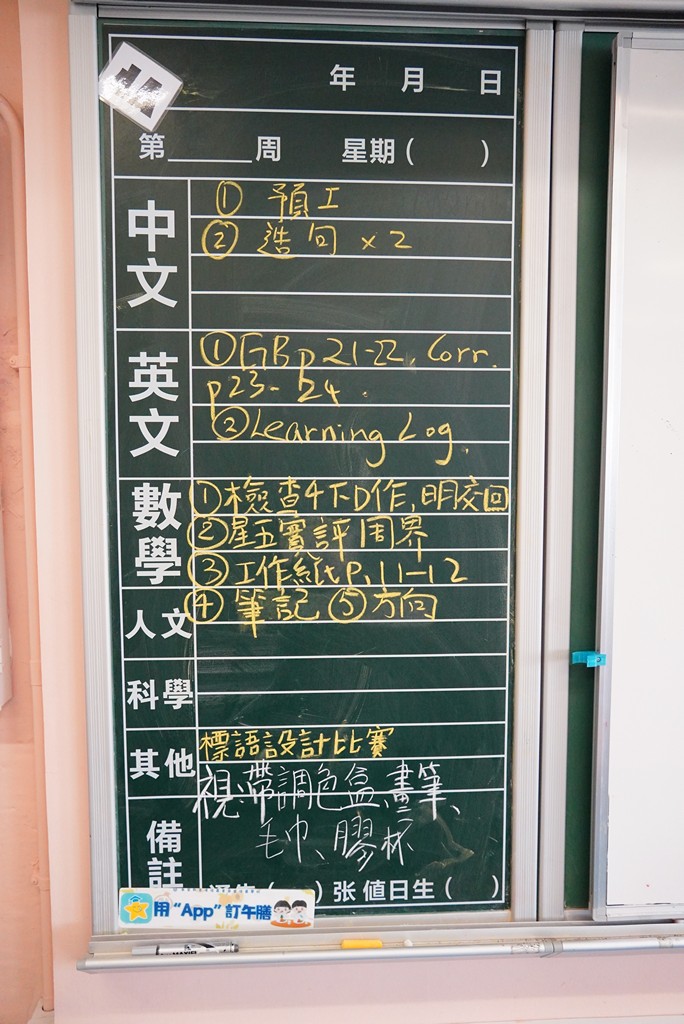 年 月 日
第______周 星期( )
中文
① 預工
② 造句 x2
英文
① GB p21-22, Corr.
p23-24.
② Learning Log.
數學
① 檢查4下D作,明交回
② 星五實評周界
③ 工作紙 P.11-12
④ 筆記 ⑤ 方向
人文
科學
其他
標語設計比賽
視:帶調色盒、畫筆、
毛巾、膠杯
備註
( ) 张 值日生( )
用“App”訂午膳